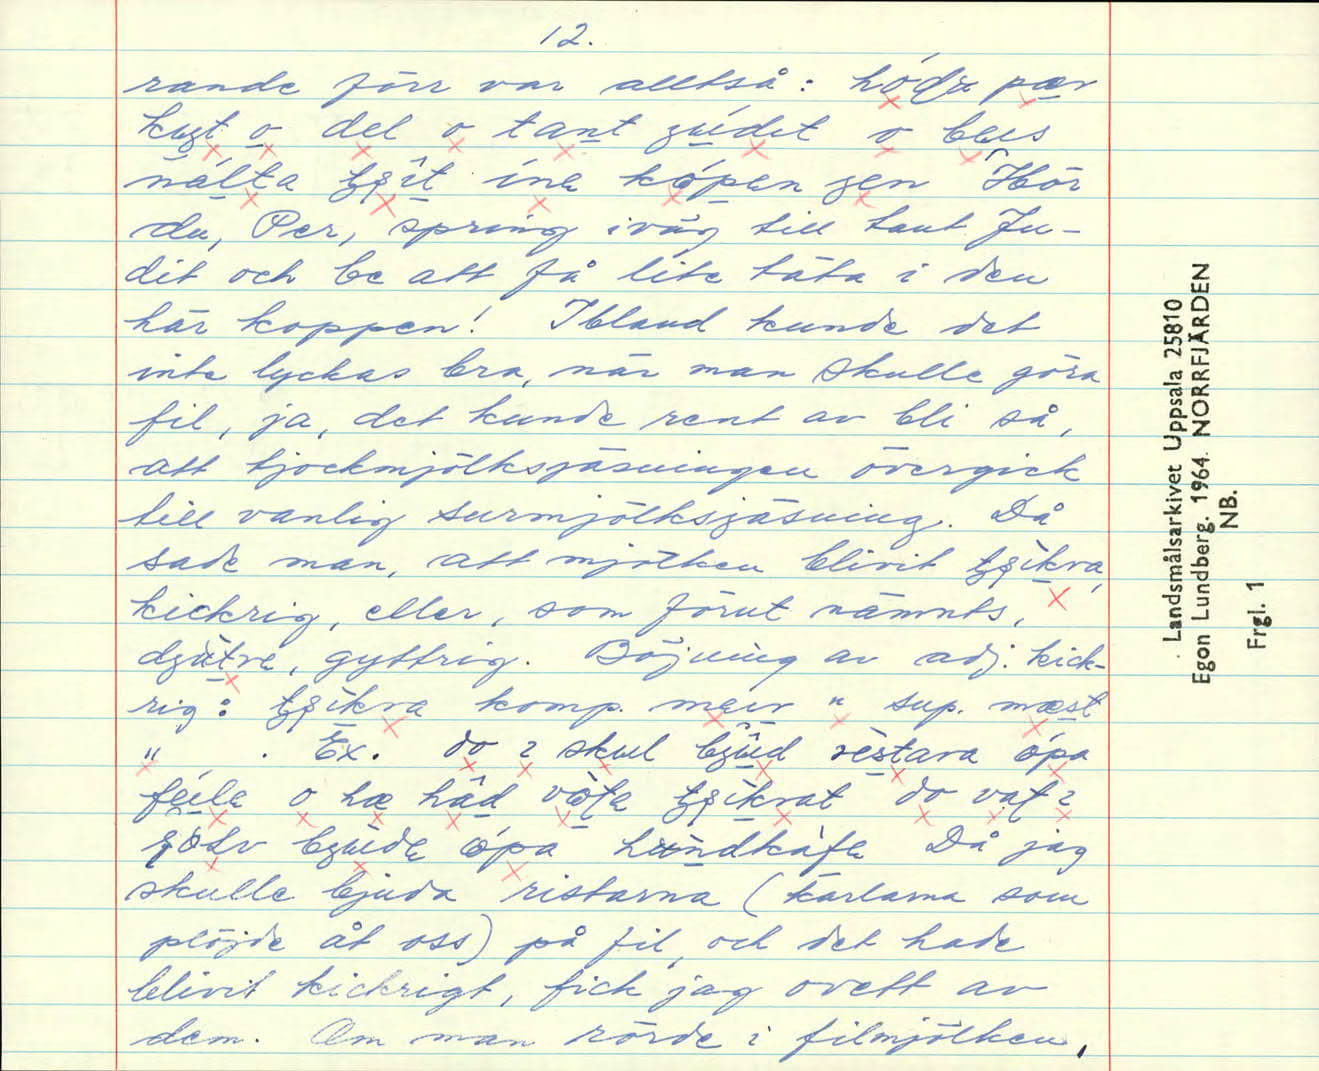 12.
rande förr var alltså: hödz pær
kuzt o del o tant zudit o bes
nálta tjęît ina kópan zen Hör
du, Per, spring iväg till tant Ju-
dit och be att få lite täta i den
här koppen! Ibland kunde det
inte lyckas bra, när man skulle göra
fil, ja, det kunde rent av bli så,
att tjockmjölksjäsningen övergick
till vanlig surmjölksjäsning. Då
sade man, att mjölken blivit
kickrig, eller, som förut nämnts,
gyttrig. Böjning av adj. kick-
rig: komp. meir " sup. mæst
" . Ex. do i skul rèstara ópa
o hæ hâd do vat i
ópa Då jag
skulle bjuda ristarna (karlarna som
plöjde åt oss) på fil, och det hade
blivit kickrigt, fick jag ovett av
dem. Om man rörde i filmjölken,
Landsmålsarkivet Uppsala 25810
Egon Lundberg. 1964. NORRFJÄRDEN
NB.
Frgl. 1